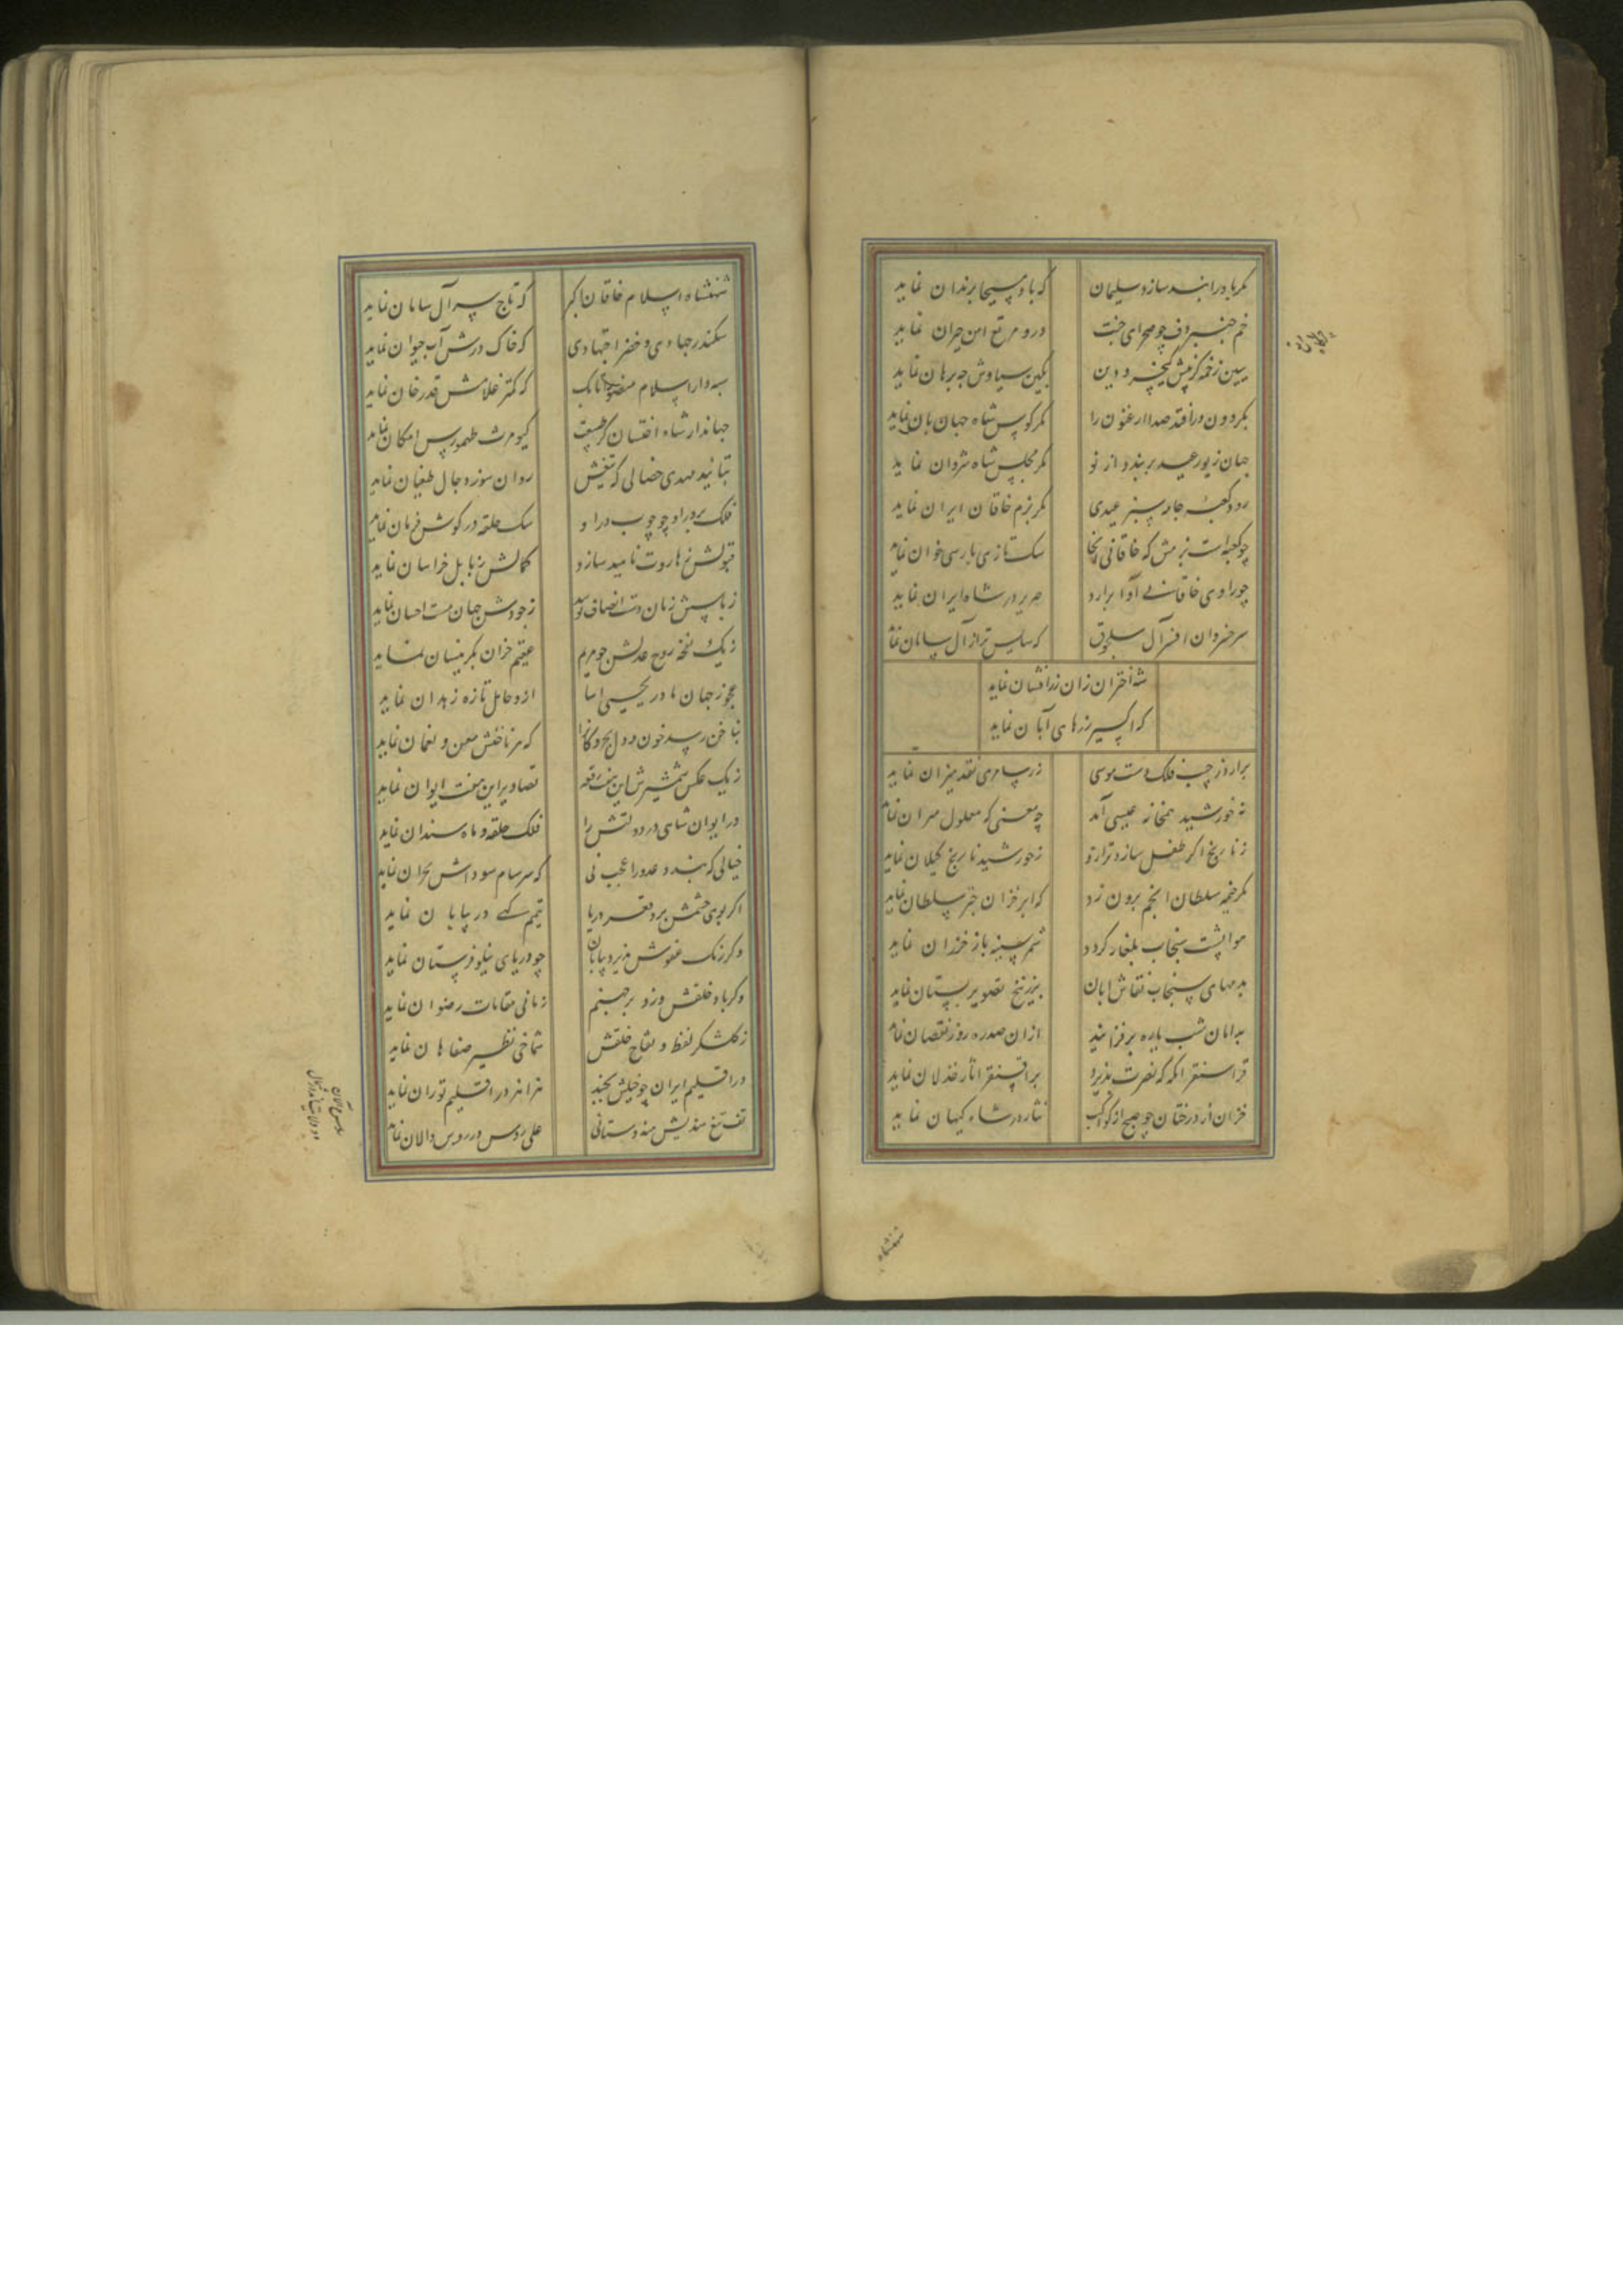 مکر باد را بند سازد سلیمان که باد مسیحا برندان نماید
خم چنبر دف چو صحرای جنت درو مرتع امن حیران نماید
ببین زخمه کز پیش کیخسرو دین بکین سیاوش چه برهان نماید
بکردون در افتد صدا ارغنون را مکر کوس شاه جهانبان نماید
جهان زیور عید بربندد از نو مکر مجلس شاه شروان نماید
رود کعبه در جامه سبز عیدی مکر بزم خاقان ایران نماید
چو کعبه است بزمش که خاقانی آنجا سک تازی پارسی خوان نماید
چو راوی خاقانی آوا برآرد صریر در شاه ایران نماید
سر خسروان افسر آل سلجوق که سایس تر از آل سامان نماید
شه اختران زان زر افشان نماید
که اکسیر زرهای آبان نماید
برآرد ز جیب فلک دست موسی زر سامری نقد میزان نماید
نه خورشید همخانه عیسی آمد چه معنی که معلول میزان نماید
ز نارنج اکر طفل سازد ترازو ز خورشید نارنج کیلان نماید
مکر خیمه سلطان انجم برون زد که ابر خزان چتر سلطان نماید
هوا پشت سنجاب بلغار کردد شمر سینه باز خزران نماید
بدمهای سنجاب نقاش آبان بزرنیخ تصویر بستان نماید
بدامان شب پاره برفزایند ازان صدره روز نقصان نماید
قراسنقر آنکه که نصرت پذیرد بر آقسنقر آثار خذلان نماید
خزان از درختان چو صبح از کواکب نثار در شاه کیهان نماید
شهنشاه
شهنشاه اسلام خاقان اکبر که تاج سر آل سامان نماید
سکندر جهادی و خضر اجتهادی که خاک درش آب حیوان نماید
سپهدار اسلام منصور اتابک که کمتر غلامش قدر خان نماید
جهاندار شاه اخستان کز طبیعت کیومرث طهمورس امکان نماید
بتأیید مهدی خصالی که تیغش روان سوز دجال طغیان نماید
فلک بر در او چو چوب در او سک حلقه در کوش فرمان نماید
قبولش ز هاروت ناهید سازد کمالش ز بابل خراسان نماید
ز باسش زمان دست انصاف بوسد ز جودش جهان مست احسان نماید
ز یک نفخه روح عدلش چو مریم عقیم خزان بکر نیسان نماید
عجوز جهان مادر یحیی آسا ازو حامل تازه زهدان نماید
بناخن رسد خون دل بحر و کانرا که هر ناخنش معن و نعمان نماید
ز یک عکس شمشیرش این هفت رقعه تصاویر این هفت ایوان نماید
در ایوان شاهی در دولتش را فلک حلقه و ماه سندان نماید
خیالی که بندد عدو را عجب نی که سرسام سوداش بحران نماید
اکر بوی خشمش برد قعر دریا تیمم کهی در بیابان نماید
وکر رنک عفوش پذیرد بیابان چو دریای نیلوفرستان نماید
وکر باد خلقش وزد بر جهنم زبانی مقامات رضوان نماید
ز کلشکر لفظ و تفاح خلقش شماخی نظیر صفاهان نماید
در اقلیم ایران چو خیلش بجنبد هزاهز در اقلیم توران نماید
تف تیغ هندیش هندوستانی علی روس در روس و الان نماید